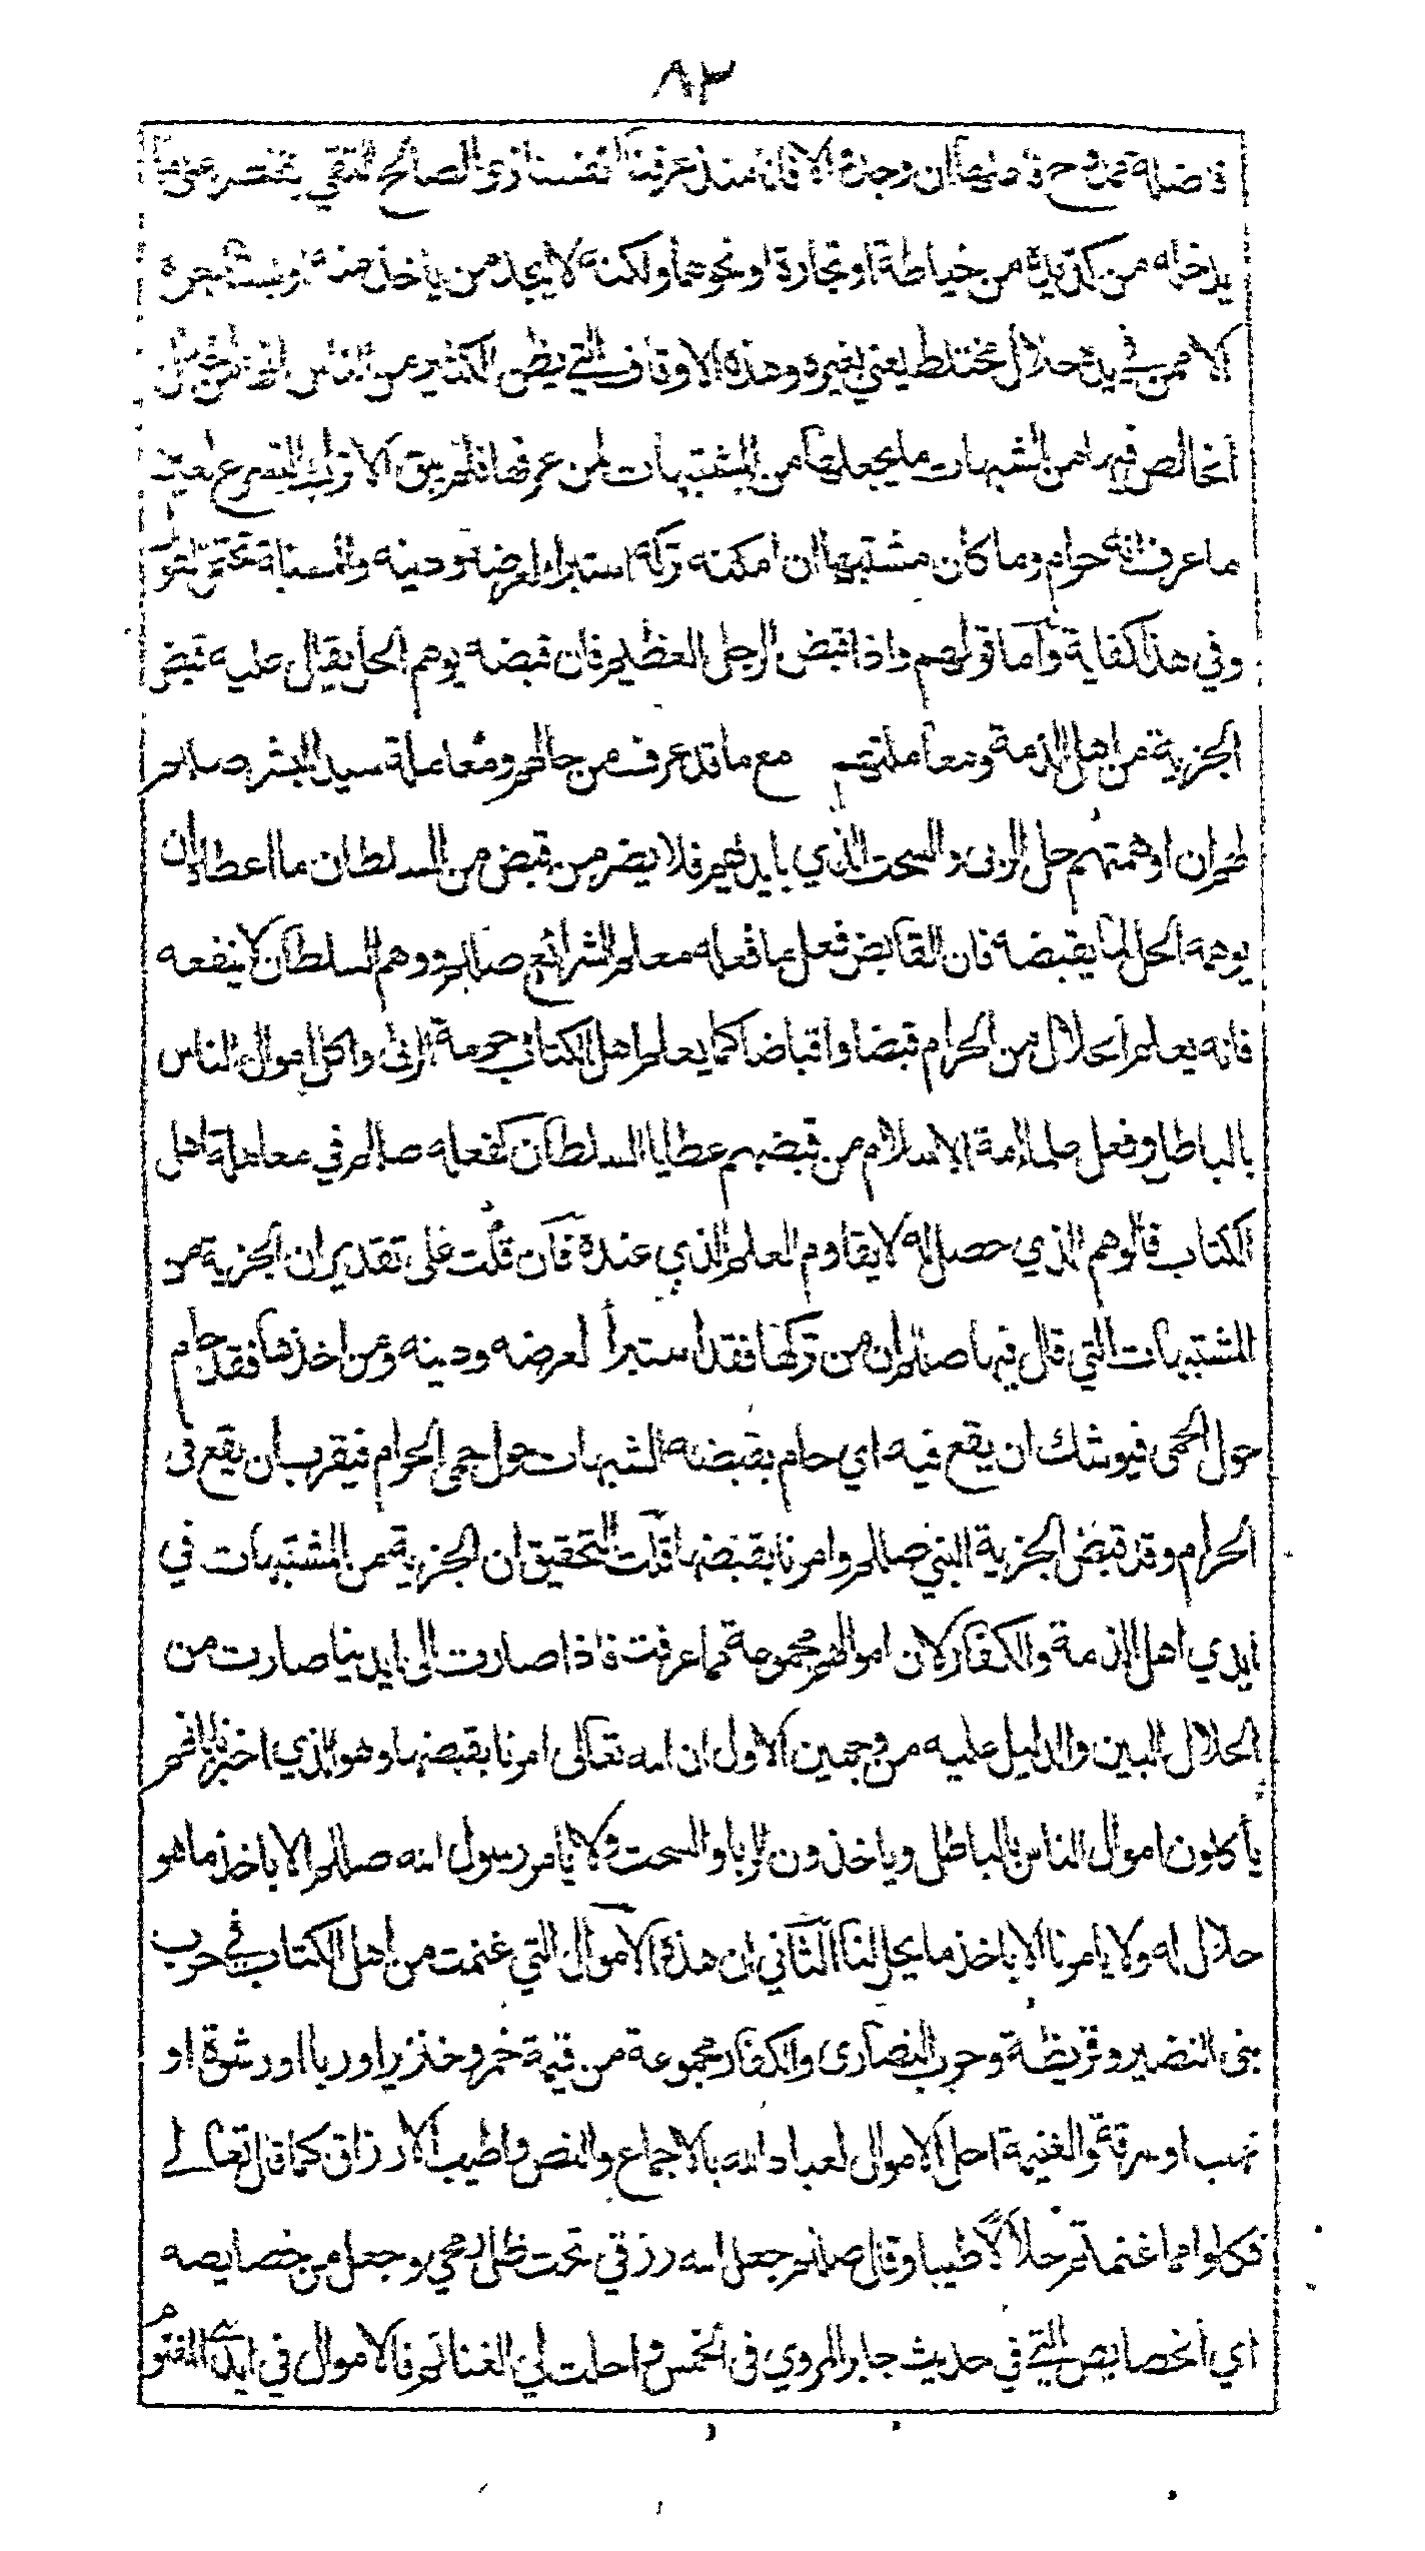 ٨٣
يدخله من كد يده من خياطة او تجارة او نحوهما ولكنه لا يجد من يأخذ منه او يستأجره
الا ممن في يده حلال مختلط يعني لغيره وهذه الاوقاف التي يظن الكثير من الناس
الخالص فيها من الشبهات ما يجعلها من المشتبهات لمن عرفها فلم يبق الا ترك
ما عرف انه حرام وما كان مشتبها ان امكنه تركه استبراء لعرضه ودينه والمسئلة تحتمل
وفي هذا كفاية وأما قولهم واذا قبض الرجل العظيم فان قبضه يوهم الحل يقال عليه قبض
الجزية من اهل الذمة ومعاملتهم مع ما قد عرف من حالهم ومعاملة سيد البشر صللم
لهم ان اوهمتهم حل الربى والسحت الذي بايديهم فلا يضر من قبض من السلطان ما اعطاه ان
يوهمه الحل لما يقبضه فان القابض فعل ما فعله معلم الشرائع صللم ووهم السلطان لا ينفعه
فانه يعلم الحلال من الحرام قبضا واقباضا كما يعلم اهل الكتاب حرمة الربى واكل اموال الناس
بالباطل وفعل علماء امة الاسلام من قبضهم عطايا السلطان كفعله صللم في معاملة اهل
الكتاب فالوهم الذي حصل له لا يقاوم العلم الذي عنده فان قلت على تقدير ان الجزية من
المشتبهات التي قال فيها صللم ان من تركها فقد استبرأ لعرضه ودينه ومن اخذها فقد حام
حول الحمى فيوشك ان يقع فيه اي حام بقبضه الشبهات حول حمى الحرام فيقرب ان يقع في
الحرام وقد قبض الجزية النبي صللم وامرنا بقبضها قلت التحقيق ان الجزية من المشتبهات في
ايدي اهل الذمة والكفار لان اموالهم مجموعة مما عرفت فاذا صارت الى ايدينا صارت من
الحلال البين والدليل عليه من وجهين الاول ان الله تعالى امرنا بقبضها وهو الذي اخبرنا انهم
يأكلون اموال الناس بالباطل وياخذون الربا والسحت ولا يأمر رسول الله صللم الا باخذ ما هو
حلال له ولا يامرنا الا باخذ ما يحل لنا الثاني ان هذه الاموال التي غنمت من اهل الكتاب في حرب
بنى النضير وقريظة وحرب النصارى والكفار مجموعة من قيمة خمر وخنزير او ربا او رشوة او
نهب او سرقة والغنيمة احل الاموال لعباد الله بالاجماع والنص واطيب الارزاق كما قال تعالى
فكلوا مما غنمتم حلالا طيبا وقال صللم جعل الله رزقي تحت ظل رمحي وجعل من خصايصه
اي الخصايص التي في حديث جابر المروي في الخمس واحلت لي الغنائم فالاموال في ايدي